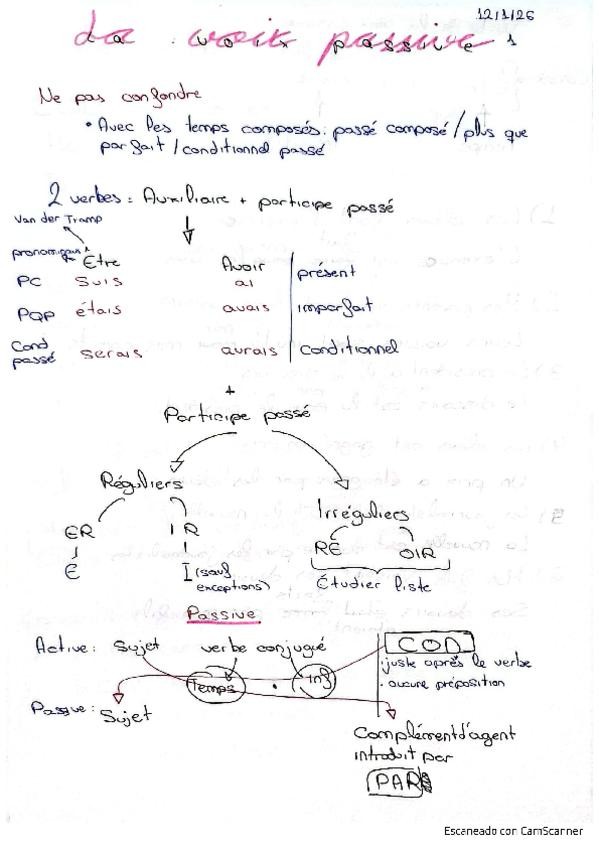 12/1/26
La voix passive 1
Ne pas confondre
• Avec les temps composés: passé composé/plus que
parfait/conditionnel passé
2 verbes = Auxiliaire + participe passé
Van der Tramp
pronominaux
Être Avoir
PC suis ai présent
PQP étais avais imparfait
Cond
passé serais aurais conditionnel
+
Participe passé
Réguliers
Irréguliers
ER IR
RE OIR
É I (sauf
exceptions)
Étudier liste
Passive
Active: Sujet verbe conjugué COD
· juste après le verbe
· aucune préposition
Temps · inf
Passive: Sujet
Complément d'agent
introduit par
PAR
Escaneado con CamScanner